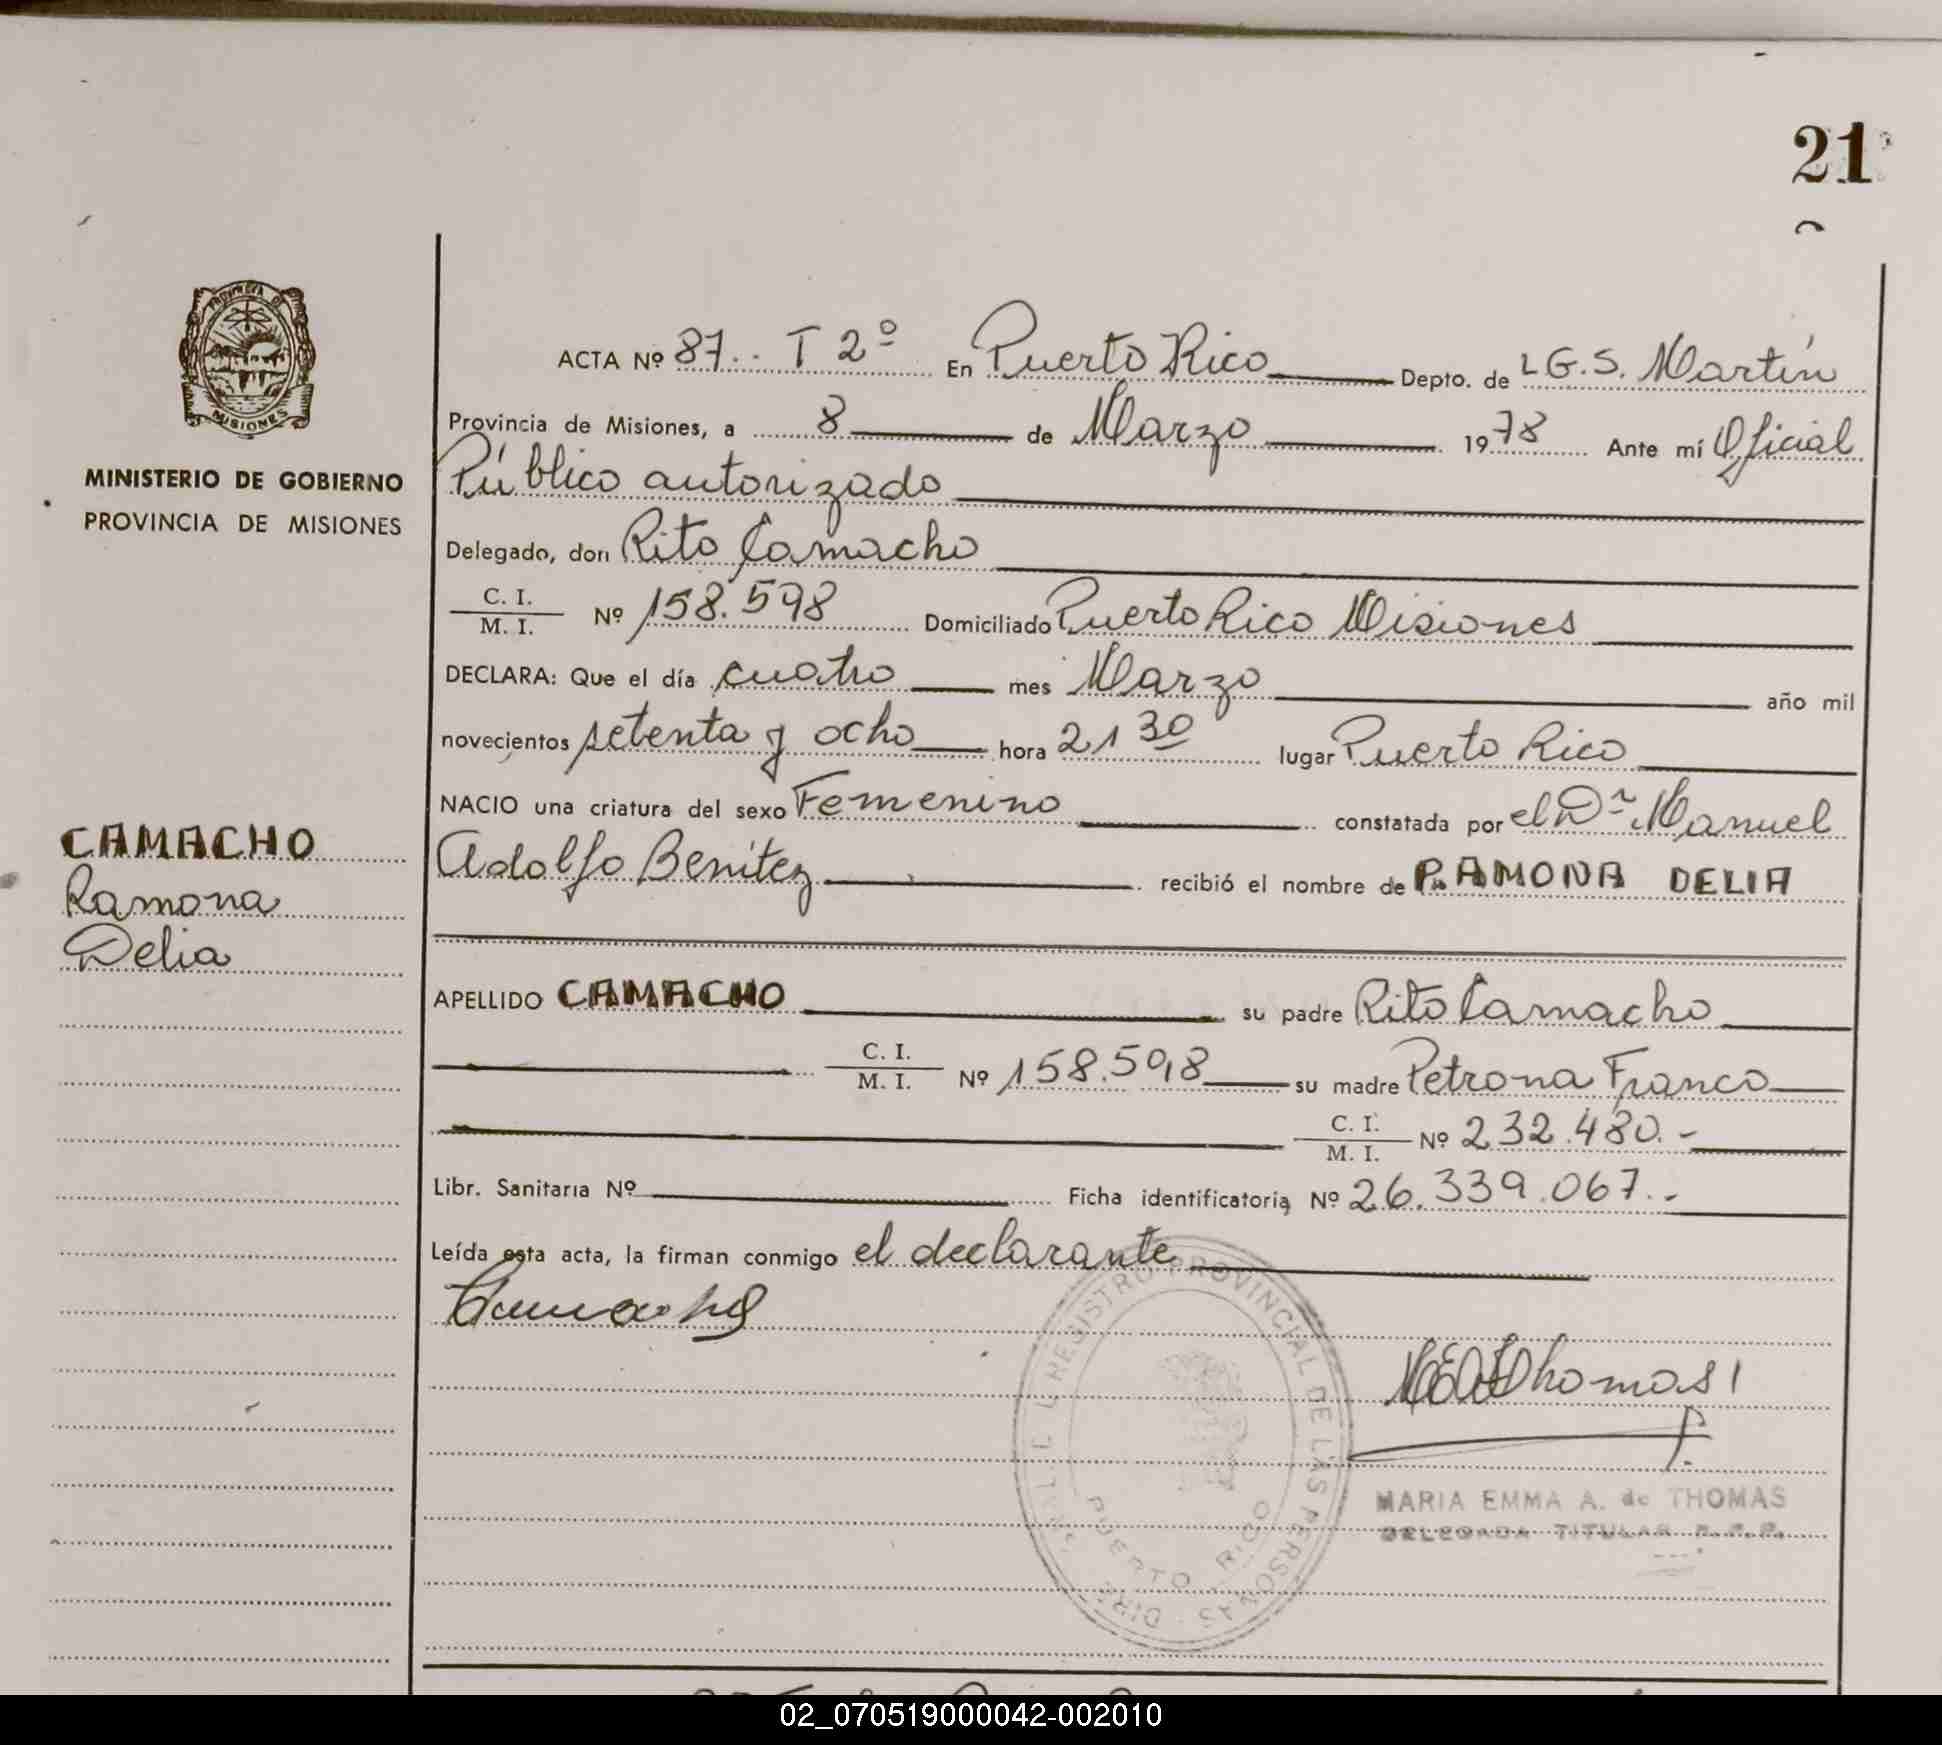 21
PROVINCIA DE
MISIONES
MINISTERIO DE GOBIERNO
PROVINCIA DE MISIONES
CAMACHO
Ramona
Delia
ACTA Nº 87.. T 2º En Puerto Rico Depto. de L G.S. Martín
Provincia de Misiones, a 8 de Marzo 1978 Ante mí Oficial
Público autorizado
Delegado, don Rito Camacho
C. I.
M. I. Nº 158.598 Domiciliado Puerto Rico Misiones
DECLARA: Que el día cuatro mes Marzo año mil
novecientos setenta y ocho hora 21 30 lugar Puerto Rico
NACIO una criatura del sexo Femenino constatada por el Dr Manuel
Adolfo Benítez recibió el nombre de RAMONA DELIA
APELLIDO CAMACHO su padre Rito Camacho
C. I.
M. I. Nº 158.598 su madre Petrona Franco
C. I.
M. I. Nº 232.480.-
Libr. Sanitaria Nº Ficha identificatoria Nº 26.339.067.-
Leída esta acta, la firman conmigo el declarante
Camacho
Thomas
REGISTRO PROVINCIAL DE LAS PERSONAS
PUERTO RICO
MARIA EMMA A. de THOMAS
DELEGADA TITULAR R.P.P.
02_070519000042-002010